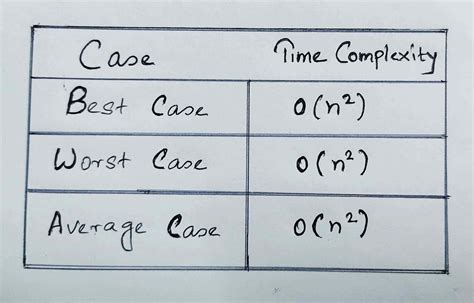 Case Time Complexity
Best Case O(n²)
Worst Case O(n²)
Average Case O(n²)